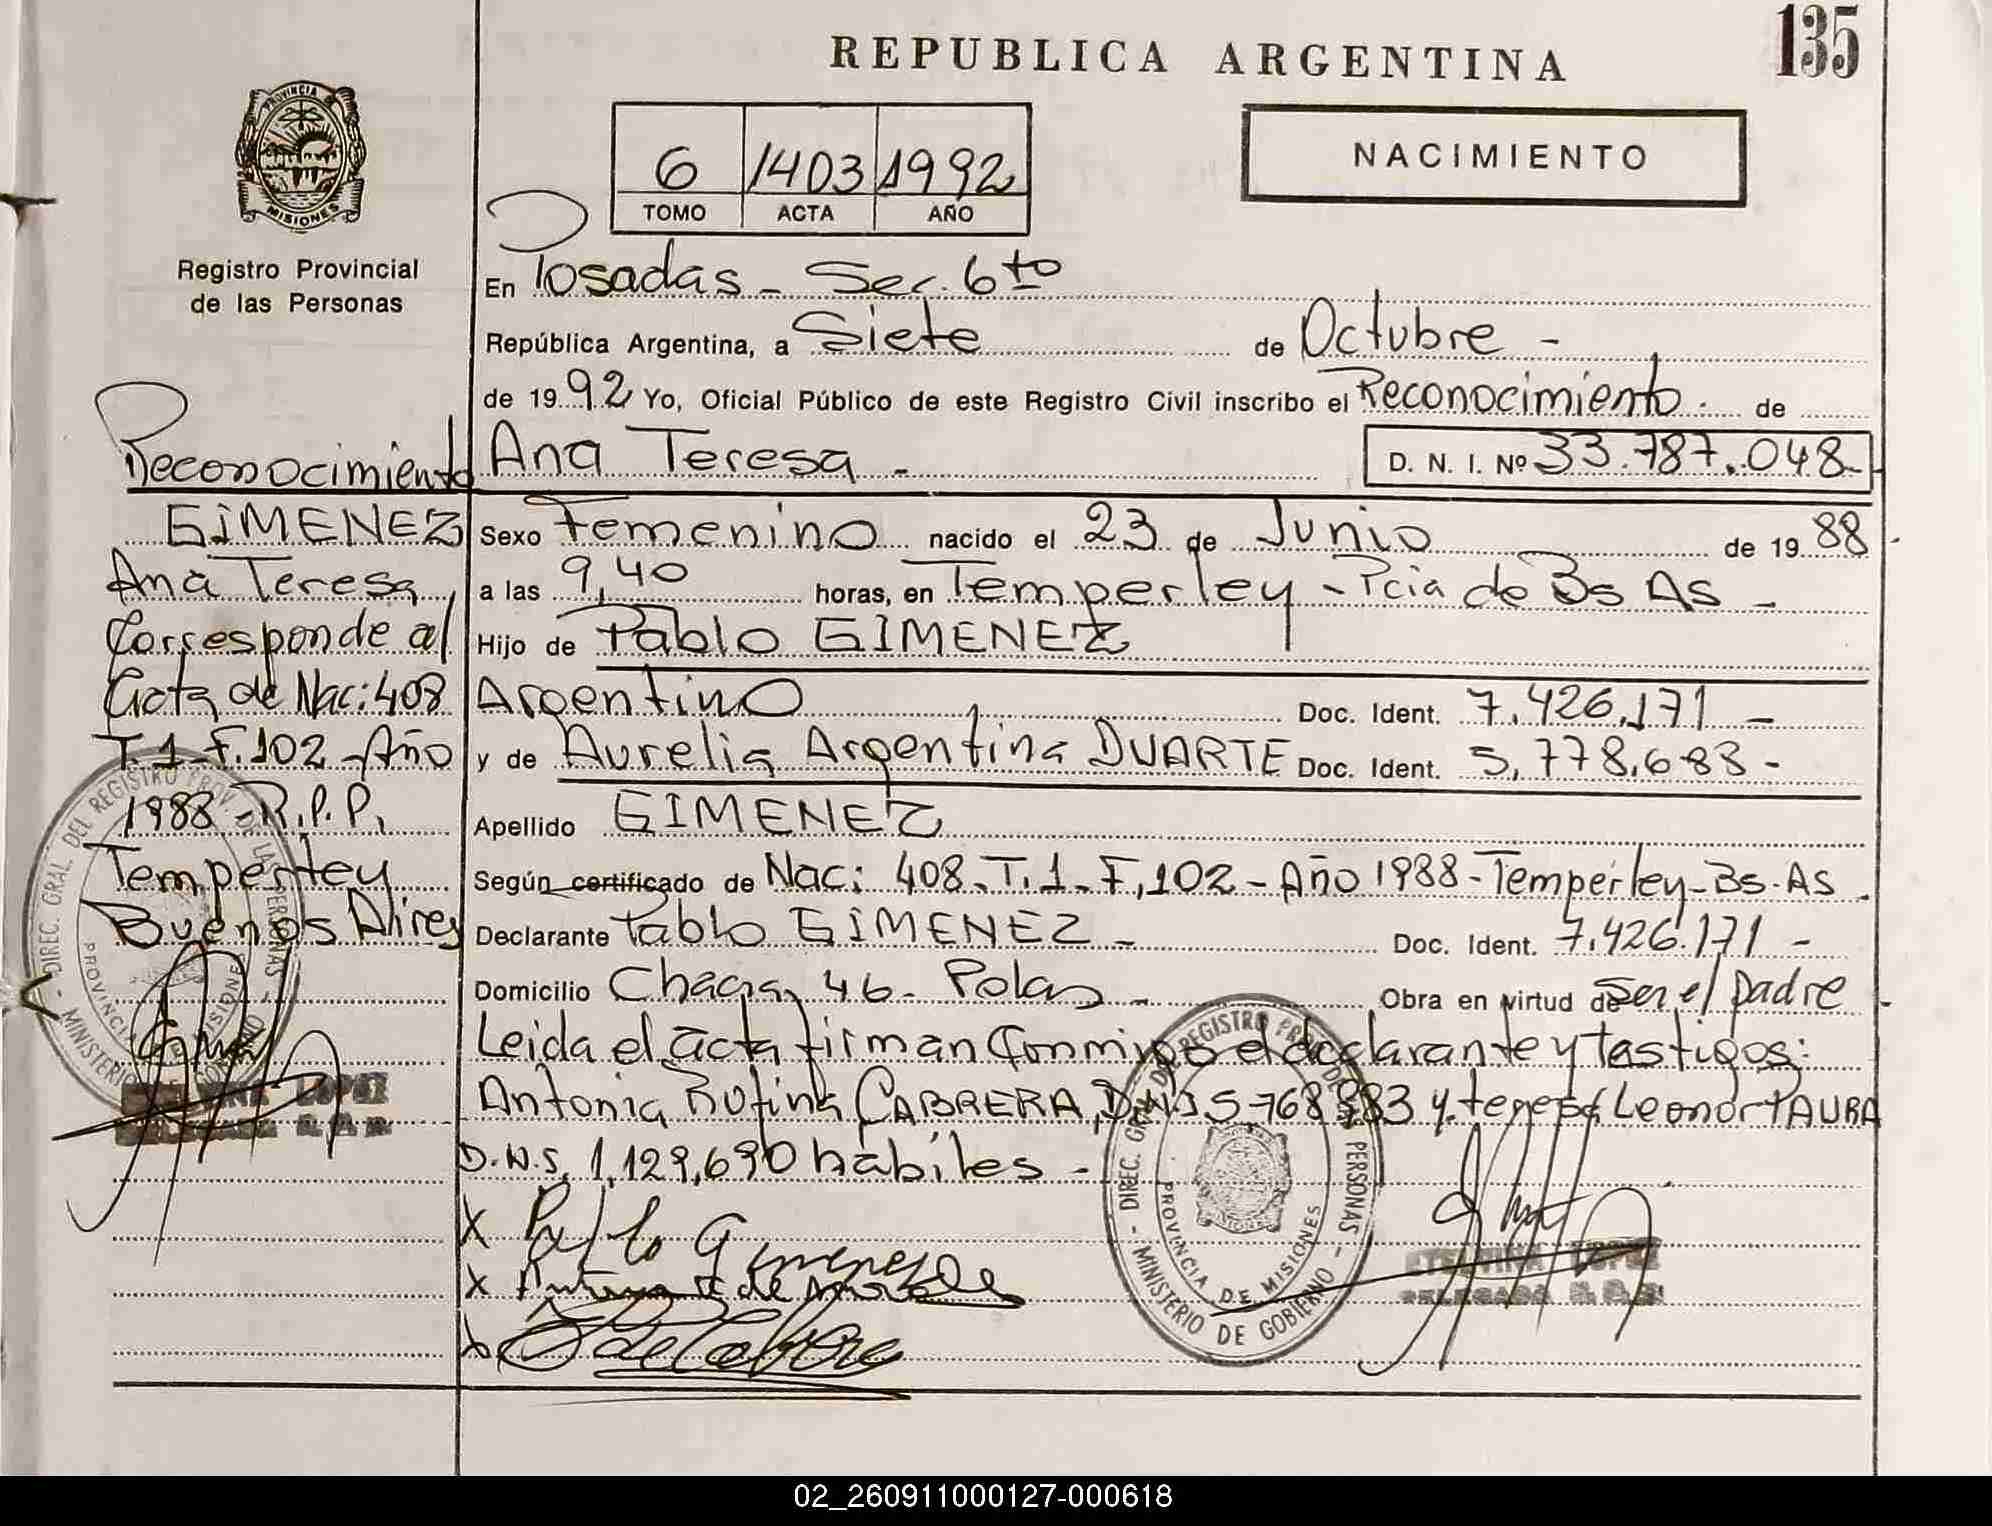 135
REPUBLICA ARGENTINA
NACIMIENTO
6 1403 1992
TOMO ACTA AÑO
PROVINCIA DE
MISIONES
Registro Provincial
de las Personas
En Posadas - Sec. 6to
República Argentina, a Siete de Octubre -
de 1992 Yo, Oficial Público de este Registro Civil inscribo el Reconocimiento. de
Ana Teresa - D. N. I. Nº 33.787.048-
Sexo Femenino nacido el 23 de Junio de 1988
a las 9,40 horas, en Temperley - Pcia de Bs As -
Hijo de Pablo GIMENEZ
Argentino Doc. Ident. 7.426.171 -
y de Aurelia Argentina DUARTE Doc. Ident. 5.778.683 -
Apellido GIMENEZ
Según certificado de Nac: 408. T. 1 - F. 102 - Año 1988 - Temperley - Bs. As
Declarante Pablo GIMENEZ - Doc. Ident. 7.426.171 -
Domicilio Chacra 46 - Polas - Obra en virtud de Ser el padre
Leida el acta firman Conmigo el declarante y testigos:
Antonia Rufina CABRERA, D.N.I 5-768 983 y teresa Leonor PAURA
D.N.S. 1,129,690 habiles -
X Pablo Gimenes
X
X
Reconocimiento
GIMENEZ
Ana Teresa
Corresponde al
Acta de Nac: 408
T. 1 - F. 102 - Año
1988 - R.P.P.
Temperley
Buenos Aires
DIREC. GRAL. DEL REGISTRO PROV. DE LAS PERSONAS
PROVINCIA DE MISIONES
MINISTERIO DE GOBIERNO
LOPEZ
DIREC. GRAL. DEL REGISTRO PROV. DE LAS PERSONAS
PROVINCIA DE MISIONES
MINISTERIO DE GOBIERNO
ETELVINA LOPEZ
DELEGADA
02_260911000127-000618